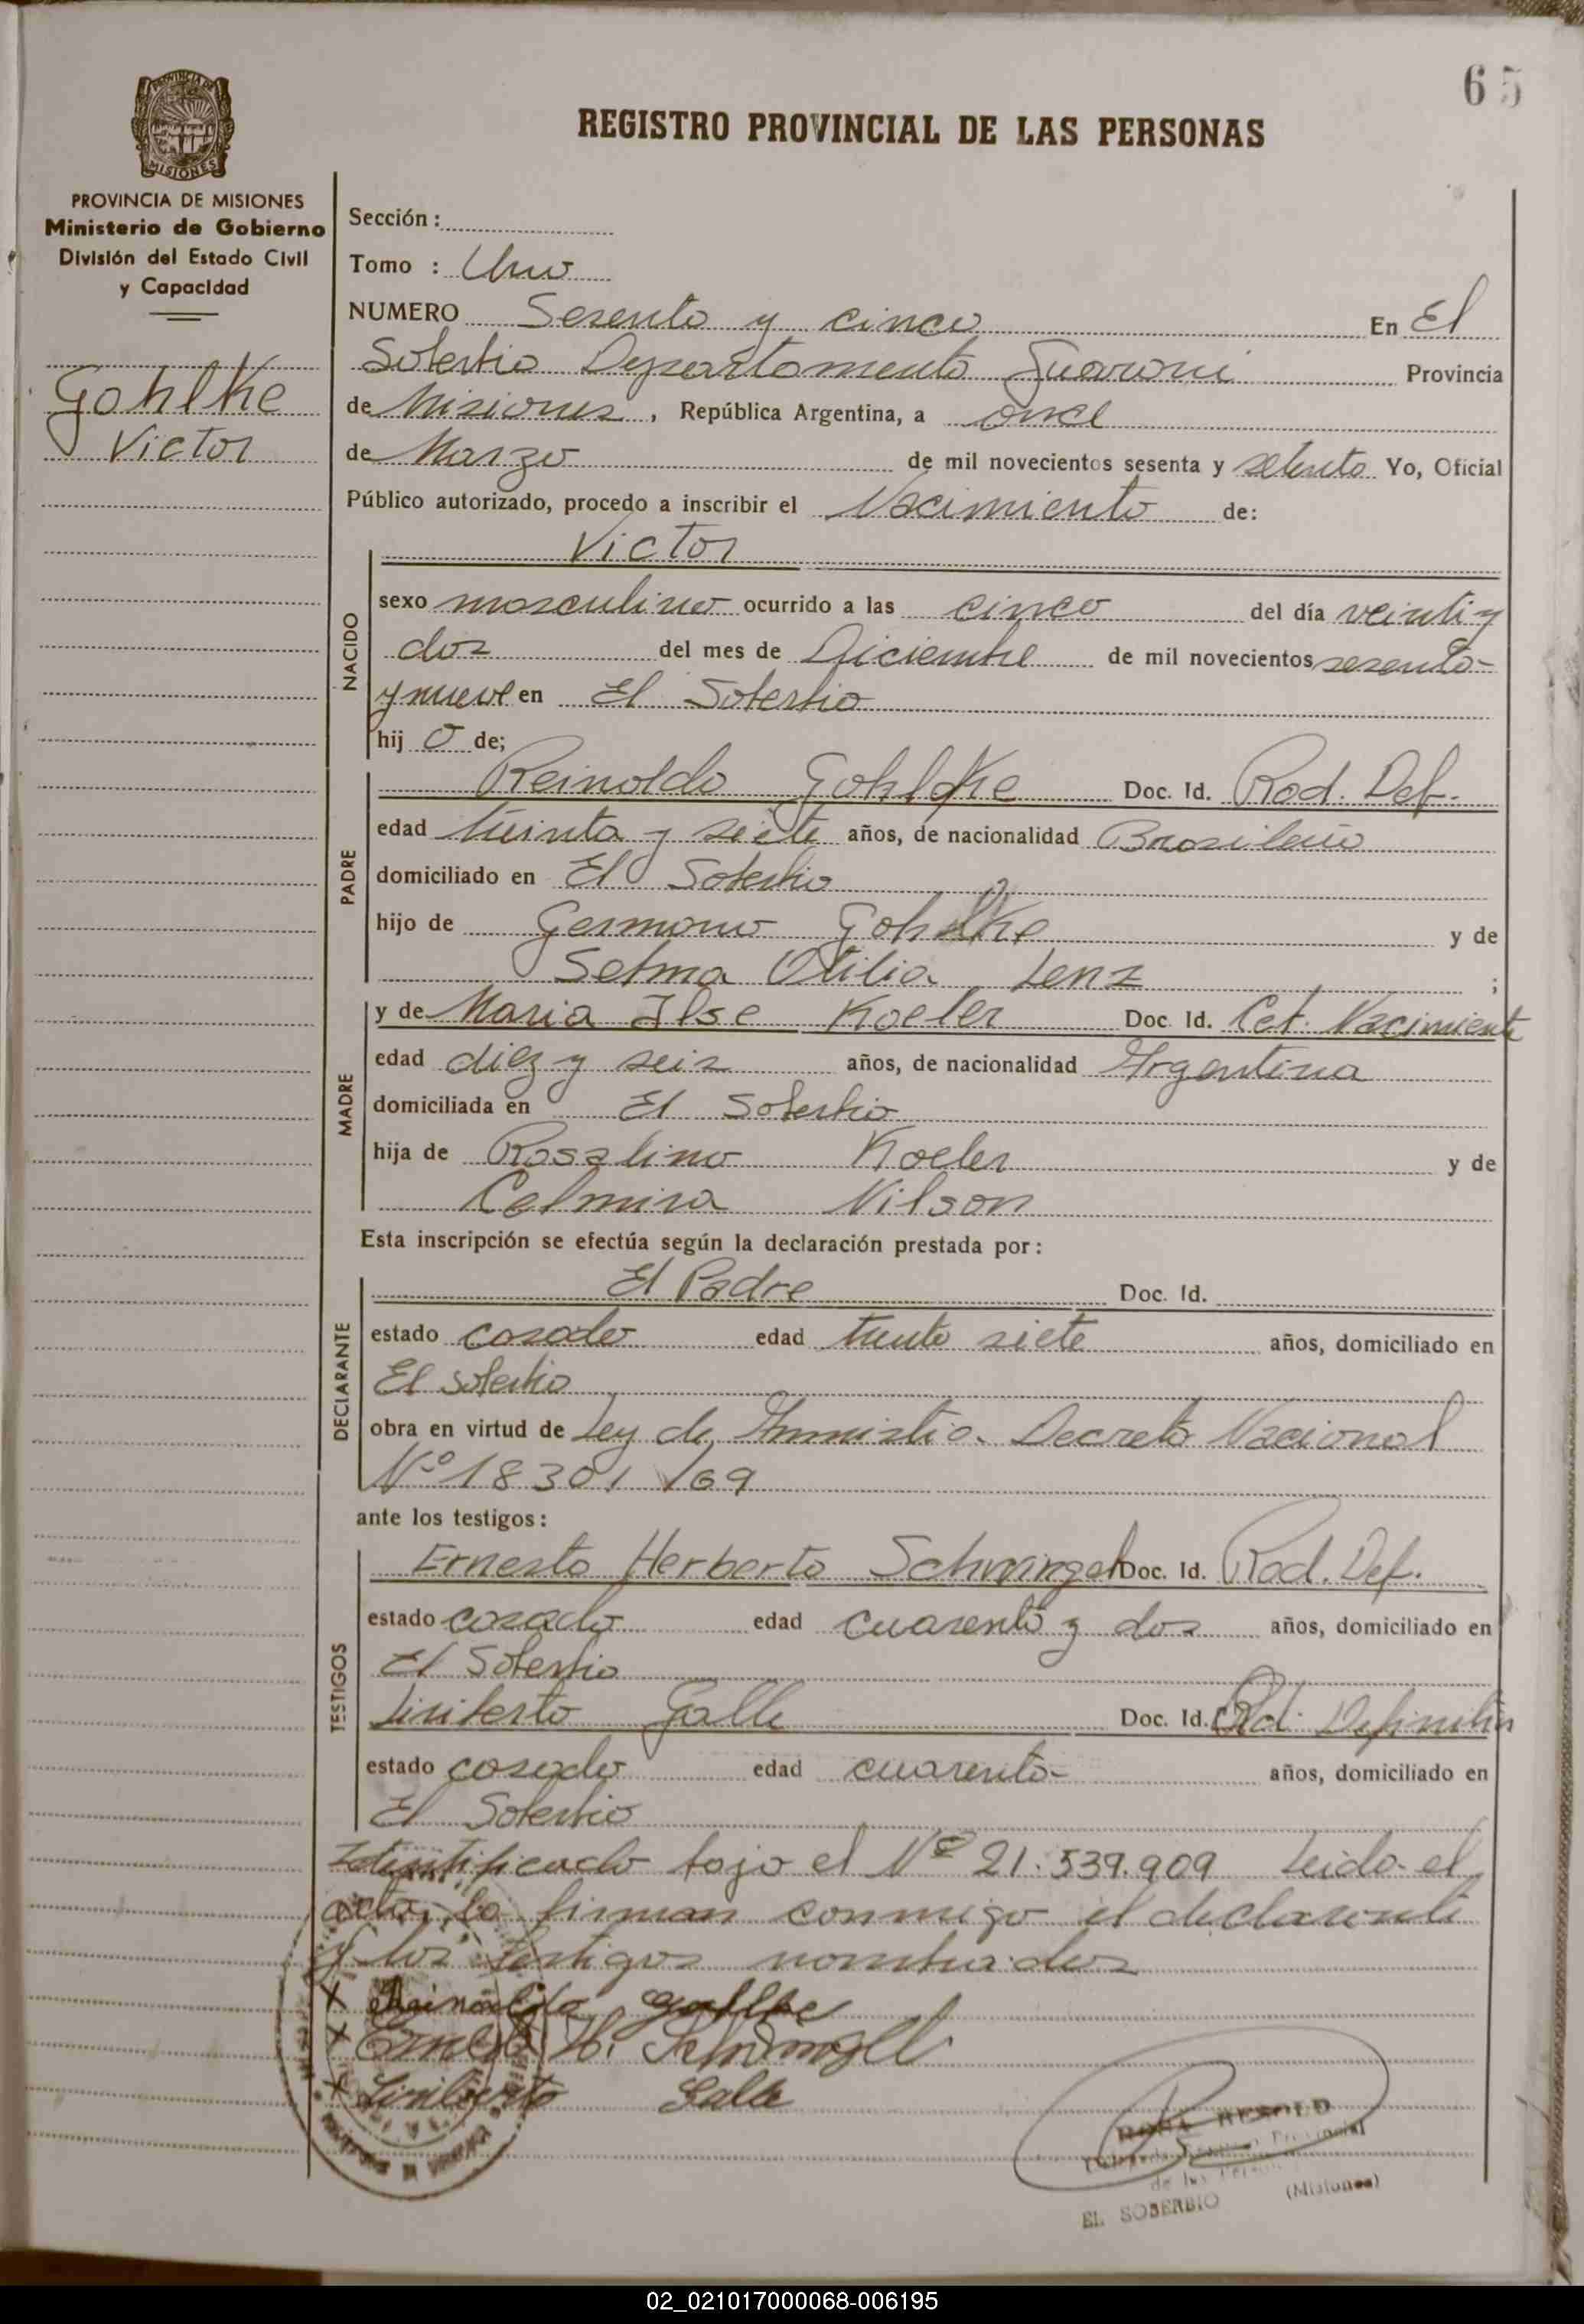 65
PROVINCIA DE MISIONES
MISIONES
PROVINCIA DE MISIONES
Ministerio de Gobierno
División del Estado Civil
y Capacidad
Gohlke
Victor
REGISTRO PROVINCIAL DE LAS PERSONAS
Sección:
Tomo : Uno
NUMERO Sesenta y cinco En El
Soberbio Departamento Guarani Provincia
de Misiones, República Argentina, a once
de Marzo de mil novecientos sesenta y setenta Yo, Oficial
Público autorizado, procedo a inscribir el Nacimiento de:
Victor
NACIDO
sexo masculino ocurrido a las cinco del día veinti y
dos del mes de Diciembre de mil novecientos sesenta-
y nueve en El Soberbio
hij o de;
PADRE
Reinoldo Gohlke Doc. Id. Rad. Def.
edad treinta y siete años, de nacionalidad Brasileño
domiciliado en El Soberbio
hijo de Germano Gohlke y de
Selma Otilia Lenz ;
MADRE
y de Maria Ilse Koeler Doc. Id. Cet. Nacimiento
edad diez y seis años, de nacionalidad Argentina
domiciliada en El Soberbio
hija de Rosalino Koeler y de
Celmira Nilson
Esta inscripción se efectúa según la declaración prestada por:
DECLARANTE
El Padre Doc. Id.
estado casado edad treinta siete años, domiciliado en
El Soberbio
obra en virtud de Ley de Amnistia. Decreto Nacional
Nº 18301/69
ante los testigos:
TESTIGOS
Ernesto Herberto Schwingel Doc. Id. Rad. Def.
estado casado edad cuarenta y dos años, domiciliado en
El Soberbio
Liriberto Galle Doc. Id. Rad. Definitiva
estado casado edad cuarenta- años, domiciliado en
El Soberbio
Identificado bajo el Nº 21.539.909 Leido el
acta, lo firman conmigo el declarante
y los testigos nombrados
X Reinoldo Gohlke
X Ernesto H. Schwingel
X Liriberto Galle
ROSA RESOLD
EL SOBERBIO (Misiones)
02_021017000068-006195